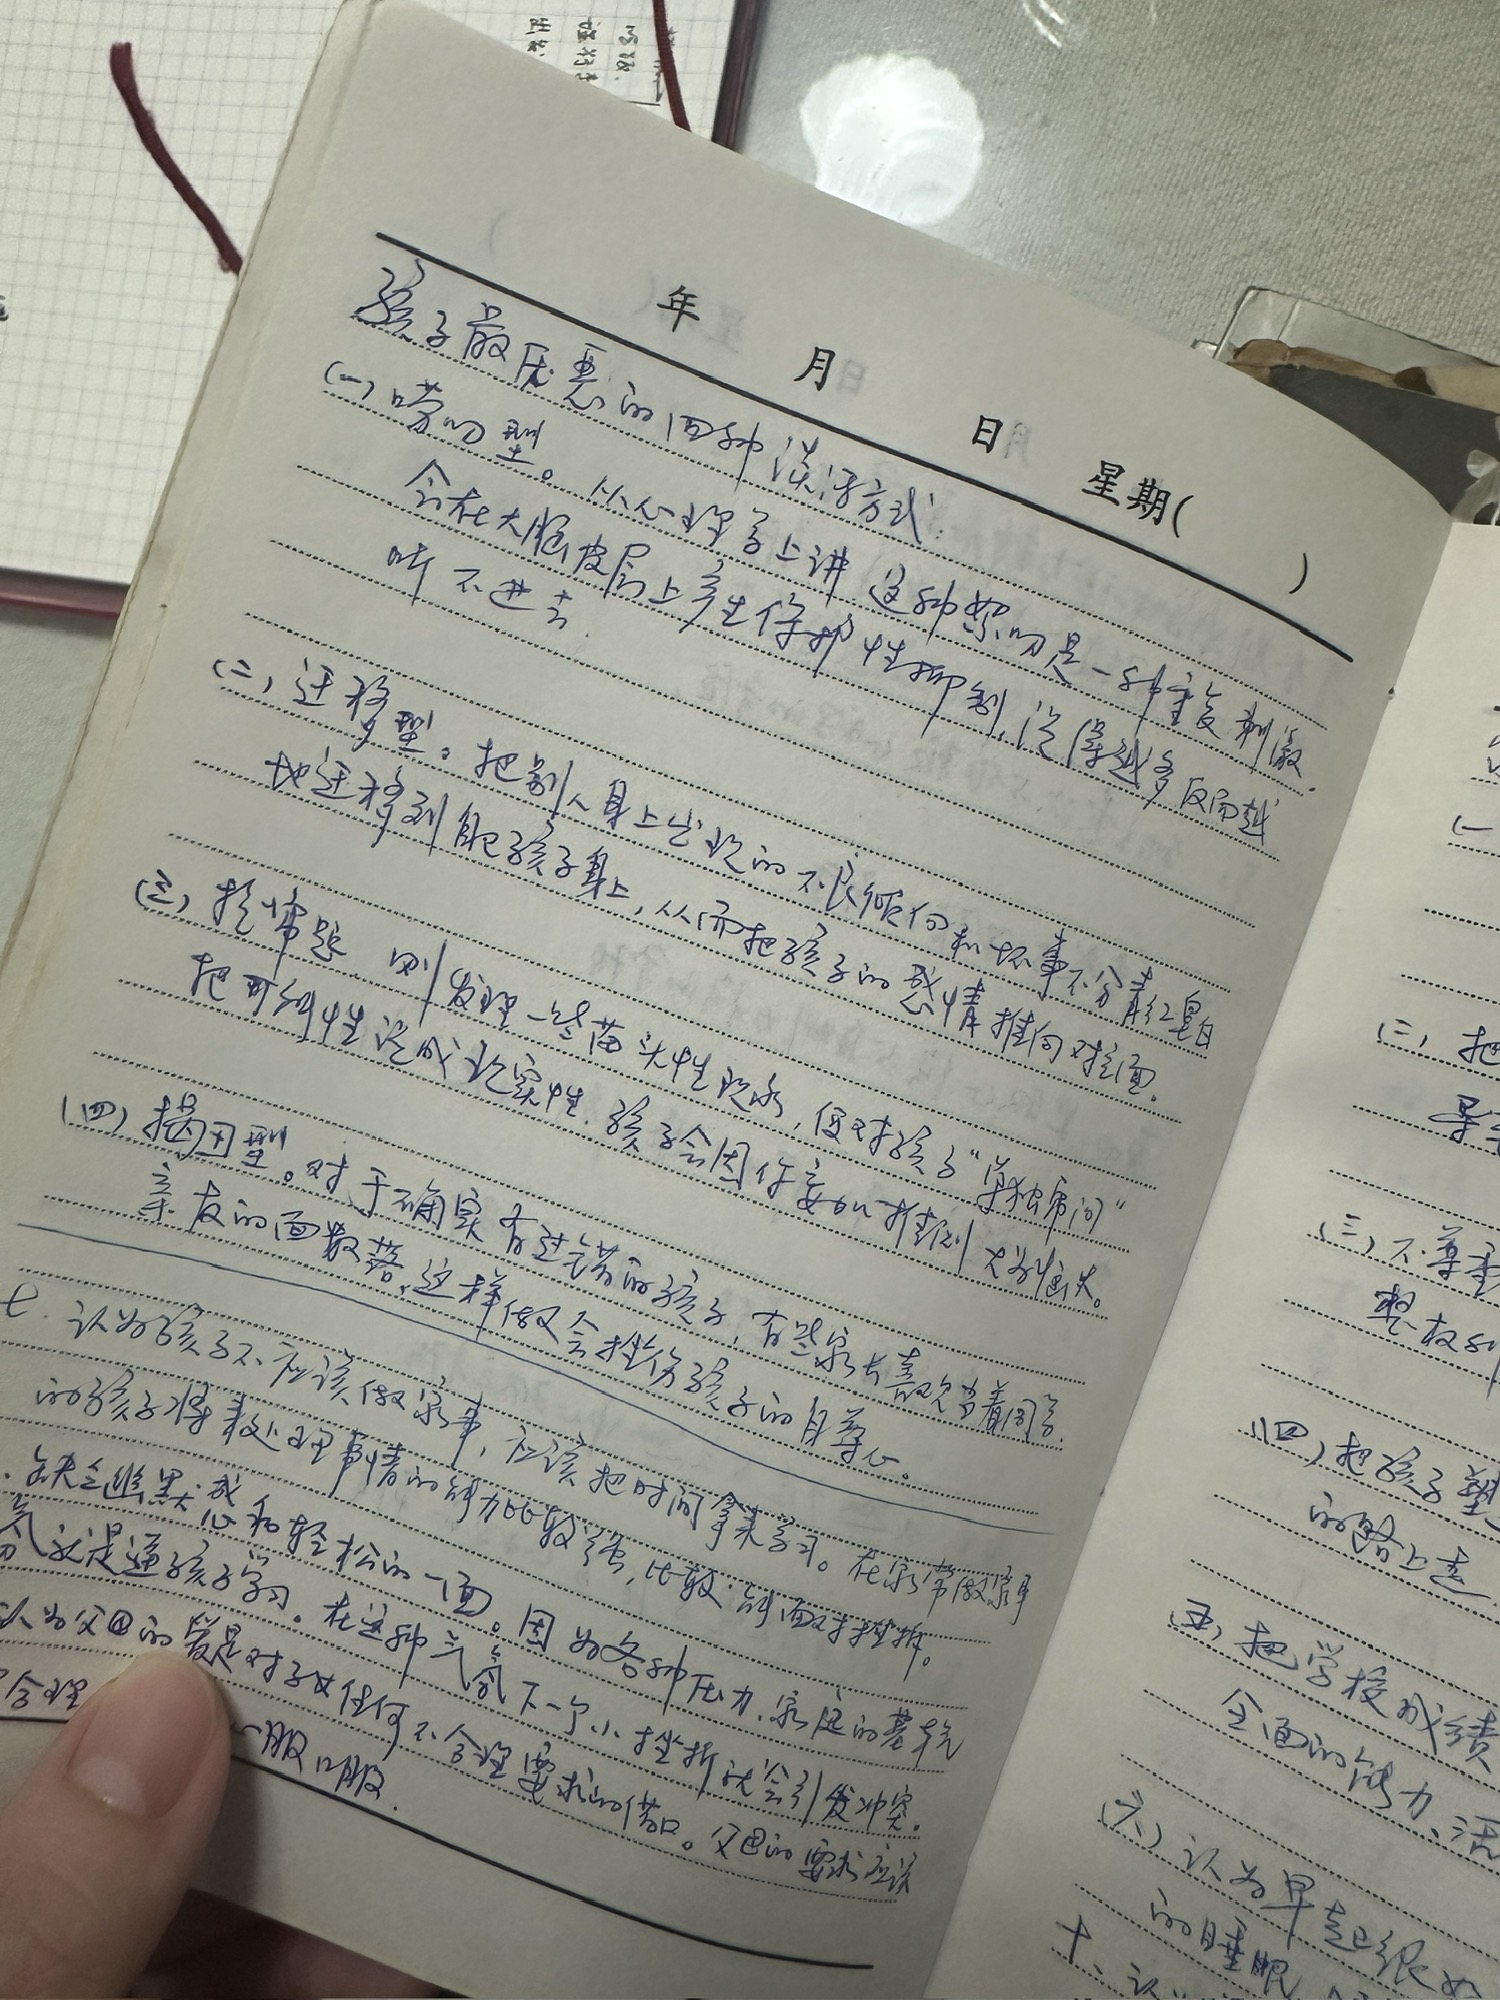 年 月 日 星期( )
孩子最厌恶的四种谈话方式:
(一)唠叨型。从心理学上讲 这种絮叨是一种重复刺激.
会在大脑皮层上产生保护性抑制,说得越多反而越
听不进去.
(二)迁移型。把别人身上出现的不良倾向和坏事不分青红皂白
地迁移到自己孩子身上,从而把孩子的感情推向对立面.
(三) 则发现一些苗头性现象,便对孩子“单独审问”
把可能性说成现实性.孩子会因你妄加推测
(四)揭用型。对于确实有过错的孩子,有些家长喜欢当着同学.
亲友的面数落,这样做会挫伤孩子的自尊心。
七.认为孩子不应该做家事,应该把时间拿来学习。在家常做家事
的孩子将来处理事情的能力比较强,比较能面对挫折。
缺乏幽默感和轻松的一面。因为各种压力,家庭的基本
气氛就是逼孩子学习。在这种气氛下一个小挫折就会引发冲突。
认为父母的 是对子女任何不合理要求的借口。父母的要求应该
合理 服口服.
(一
(二)把
(三)不尊重
整
(四)把孩子塑
的路上走
五)把学校成绩
全面的能力、活
(六)认为早起
的睡眠
十.认